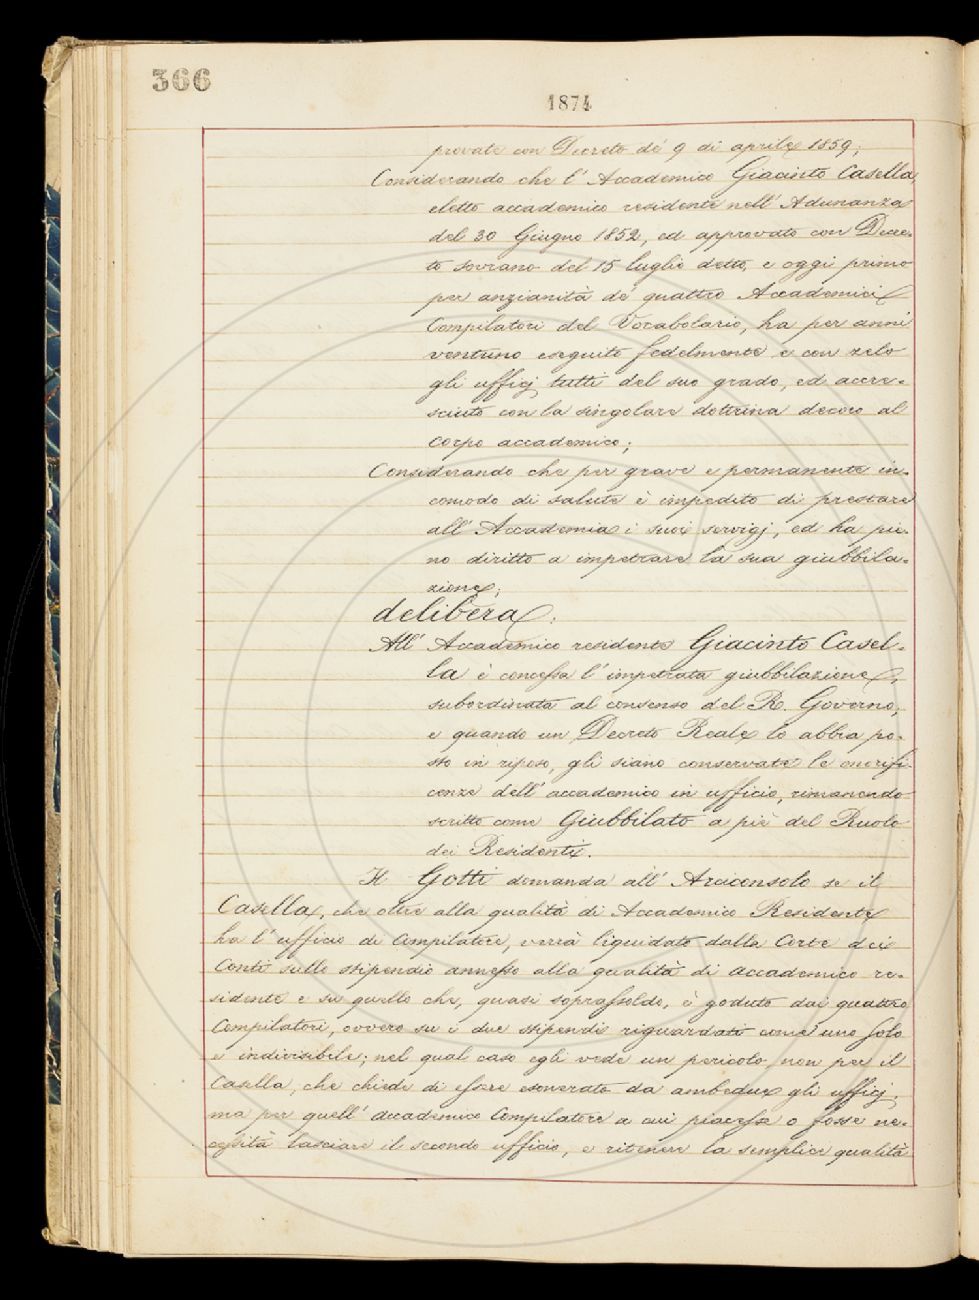 366
1874
provate con Decreto de' 9 di aprile 1859;
Considerando che l'Accademico Giacinto Casella,
eletto accademico residente nell'Adunanza
del 30 Giugno 1852, ed approvato con Decre-
to sovrano del 15 luglio detto, e oggi primo
per anzianità de' quattro Accademici
Compilatori del Vocabolario, ha per anni
ventuno eseguito fedelmente e con zelo
gli ufficj tutti del suo grado, ed accre-
sciuto con la singolare dottrina decoro al
corpo accademico;
Considerando che per grave e permanente in-
comodo di salute è impedito di prestare
all'Accademia i suoi servigj, ed ha pie-
no diritto a impetrare la sua giubbila-
zione;
delibera:
All'Accademico residente Giacinto Casel-
la è concessa l'impetrata giubbilazione,
subordinata al consenso del R. Governo;
e quando un Decreto Reale lo abbia po-
sto in riposo, gli siano conservate le onorifi-
cenze dell'accademico in ufficio, rimanendo
scritto come Giubbilato a piè del Ruolo
dei Residenti.
Il Gotti domanda all'Arciconsolo se il
Casella, che oltre alla qualità di Accademico Residente
ha l'ufficio di Compilatore, verrà liquidato dalla Corte dei
Conti sullo stipendio annesso alla qualità di accademico re-
sidente e su quello che, quasi soprassoldo, è goduto dai quattro
Compilatori, ovvero su i due stipendi riguardati come uno solo
e indivisibile; nel qual caso egli vede un pericolo, non per il
Casella, che chiede di essere esonerato da ambedue gli ufficj,
ma per quell'accademico Compilatore a cui piacesse o fosse ne-
cessità lasciare il secondo ufficio, e ritenere la semplice qualità